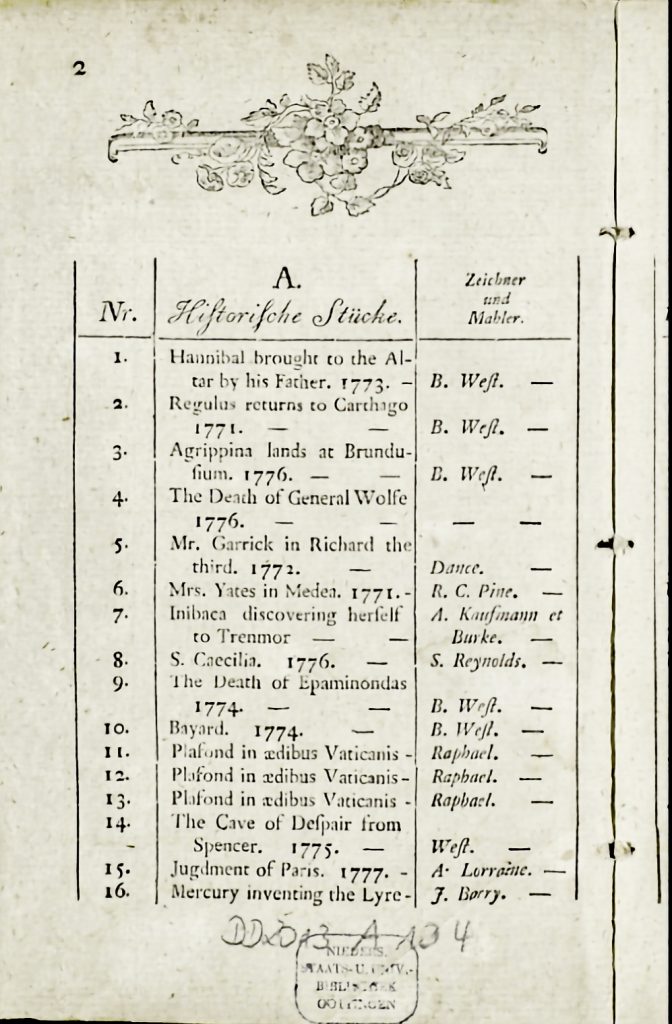 2
A.
Nr. Hiſtoriſche Stücke. Zeichner und Mahler.
1. Hannibal brought to the Al-
tar by his Father. 1773. - B. Weſt. —
2. Regulus returns to Carthago
1771. — — B. Weſt. —
3. Agrippina lands at Brundu-
ſium. 1776. — — B. Weſt. —
4. The Death of General Wolfe
1776. — — — —
5. Mr. Garrick in Richard the
third. 1772. — Dance. —
6. Mrs. Yates in Medea. 1771. - R. C. Pine. —
7. Inibaca discovering herſelf A. Kaufmann et
to Trenmor — — Burke. —
8. S. Caecilia. 1776. — S. Reynolds. —
9. The Death of Epaminondas
1774. — — B. Weſt. —
10. Bayard. 1774. — B. Weſt. —
11. Plafond in ædibus Vaticanis - Raphael. —
12. Plafond in ædibus Vaticanis - Raphael. —
13. Plafond in ædibus Vaticanis - Raphael. —
14. The Cave of Deſpair from
Spencer. 1775. — Weſt. —
15. Jugdment of Paris. 1777. - A. Lorraine. —
16. Mercury inventing the Lyre - J. Barry. —
A 134
NIEDERS.
STAATS-U. UNIV.-
BIBLIOTHEK
GÖTTINGEN